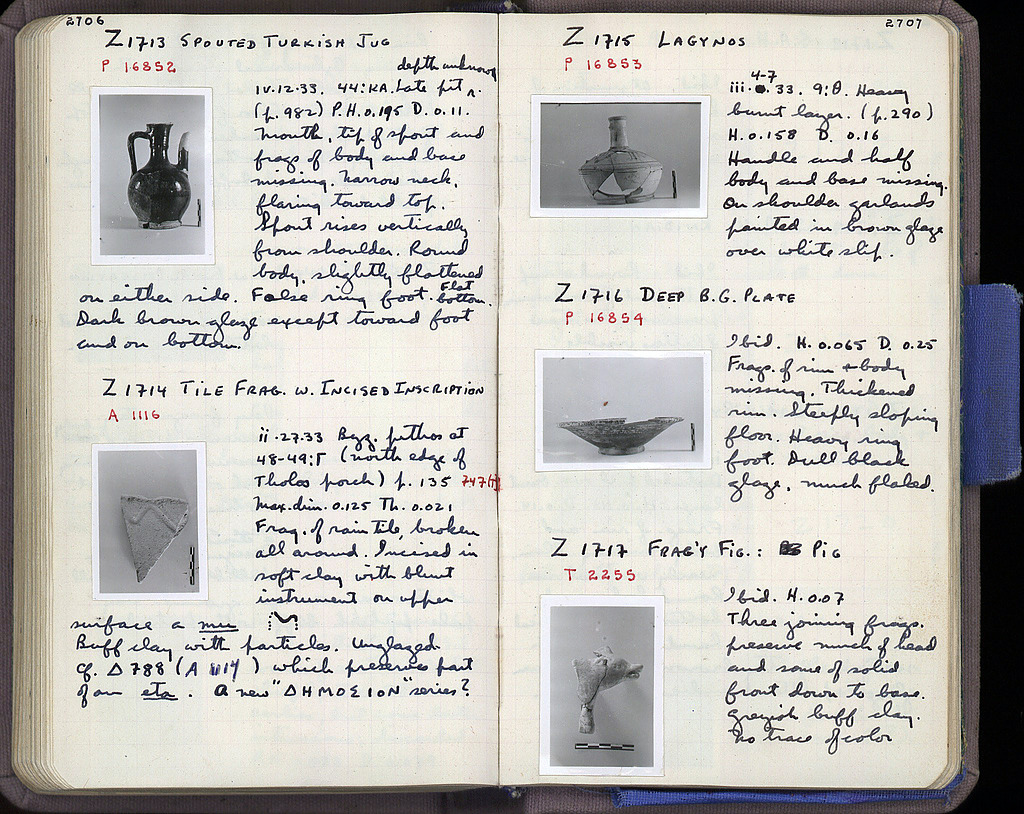 2706
Z 1713 SPOUTED TURKISH JUG
P 16852
depth unknown
iv.12.33. 44:KA. Late pit ^.
(p. 982) P.H. 0.195 D. 0.11.
Mouth, tip of spout and
frags of body and base
missing. Narrow neck,
flaring toward top.
Spout rises vertically
from shoulder. Round
body, slightly flattened
on either side. False ring foot. Flat bottom.
Dark brown glaze except toward foot
and on bottom.
Z 1714 TILE FRAG. W. INCISED INSCRIPTION
A 1116
ii.27.33 Byz. pithos at
48-49:Γ (north edge of
Tholos porch) p. 135 747(†)
Max. dim. 0.125 Th. 0.021
Frag. of rain tile, broken
all around. Incised in
soft clay with blunt
instrument on upper
surface a mu
Buff clay with particles. Unglazed.
Cf. Δ 788 (A 1114) which preserves part
of an eta. A new "ΔΗΜΟΣΙΟΝ" series?
2707
Z 1715 LAGYNOS
P 16853
4-7
iii. .33. 9:Θ. Heavy
burnt layer. (p. 290)
H. 0.158 D. 0.16
Handle and half
body and base missing.
On shoulder garlands
painted in brown glaze
over white slip.
Z 1716 DEEP B.G. PLATE
P 16854
Ibid. H. 0.065 D. 0.25
Frags. of rim + body
missing. Thickened
rim. Steeply sloping
floor. Heavy ring
foot. Dull black
glaze, much flaked.
Z 1717 FRAG'Y FIG.: PIG
T 2255
Ibid. H. 0.07
Three joining frags.
preserve much of head
and some of solid
front down to base.
Greyish buff clay.
No trace of color